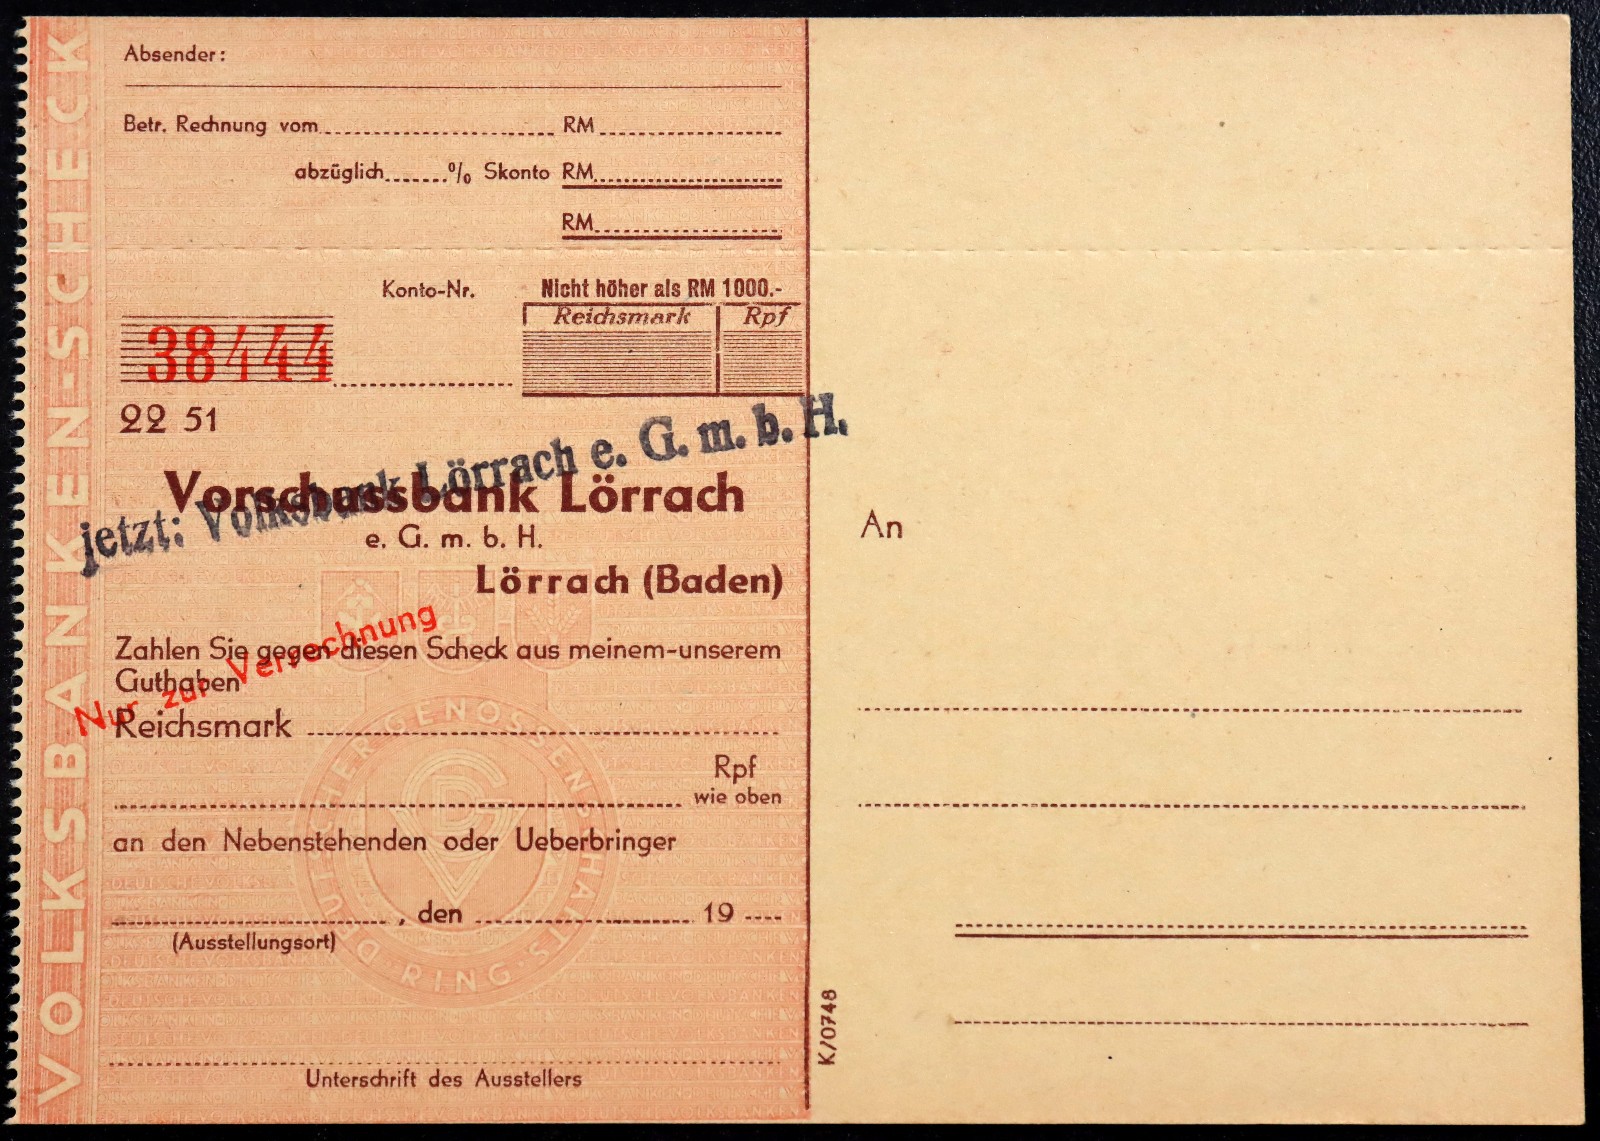 VOLKSBANKEN-SCHECK
Absender:
Betr. Rechnung vom RM
abzüglich % Skonto RM
RM
Konto-Nr.
Nicht höher als RM 1000.-
Reichsmark Rpf
38444
22 51
Vorschussbank Lörrach
e. G. m. b. H.
Lörrach (Baden)
jetzt: Volksbank Lörrach e. G. m. b. H.
Zahlen Sie gegen diesen Scheck aus meinem-unserem
Guthaben
Nur zur Verrechnung
Reichsmark
Rpf
wie oben
an den Nebenstehenden oder Ueberbringer
, den 19
(Ausstellungsort)
Unterschrift des Ausstellers
DEUTSCHER GENOSSENSCHAFTS-RING
K/0748
An